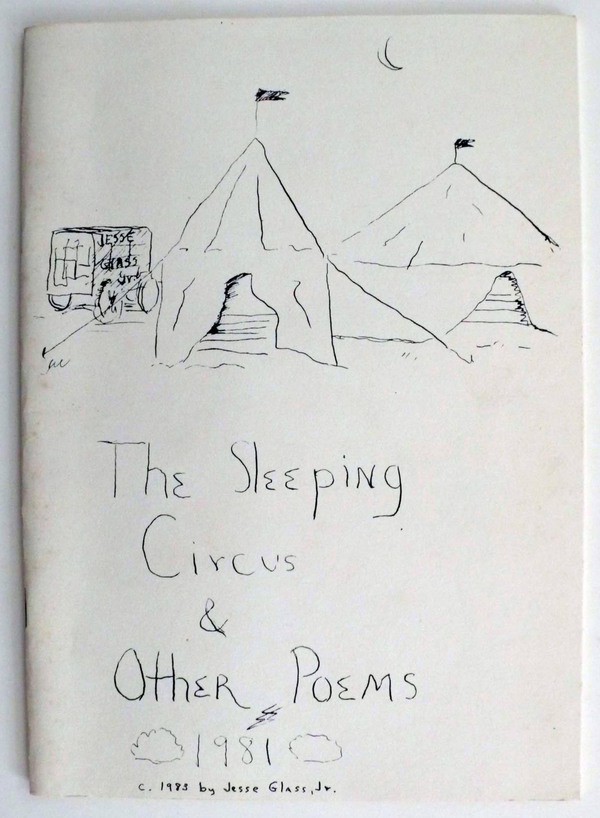 JESSE
GLASS
Jr.
The Sleeping
Circus
&
Other Poems
1981
c. 1983 by Jesse Glass, Jr.